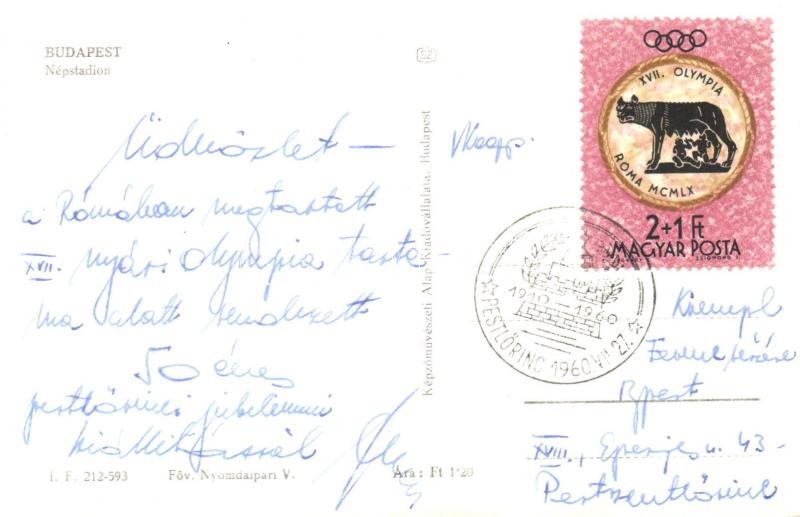 BUDAPEST
Népstadion
Üdvözlet –
a Rómában megtartott
XVII. nyári olympia tarta-
ma alatt rendezett
50 éves
pestlőrinci jubileumi
kiállításról
I. F. 212-593 Főv. Nyomdaipari V. Ára: Ft 1·20
Képzőművészeti Alap Kiadóvállalata, Budapest
XVII. OLYMPIA
ROMA MCMLX
2+1 Ft
MAGYAR POSTA
1910 – 1960
PESTLŐRINC 1960.VII.27.
Krempl
Ferenc részére
Bpest
XVIII., Eperjes u. 43
Pestszentlőrinc